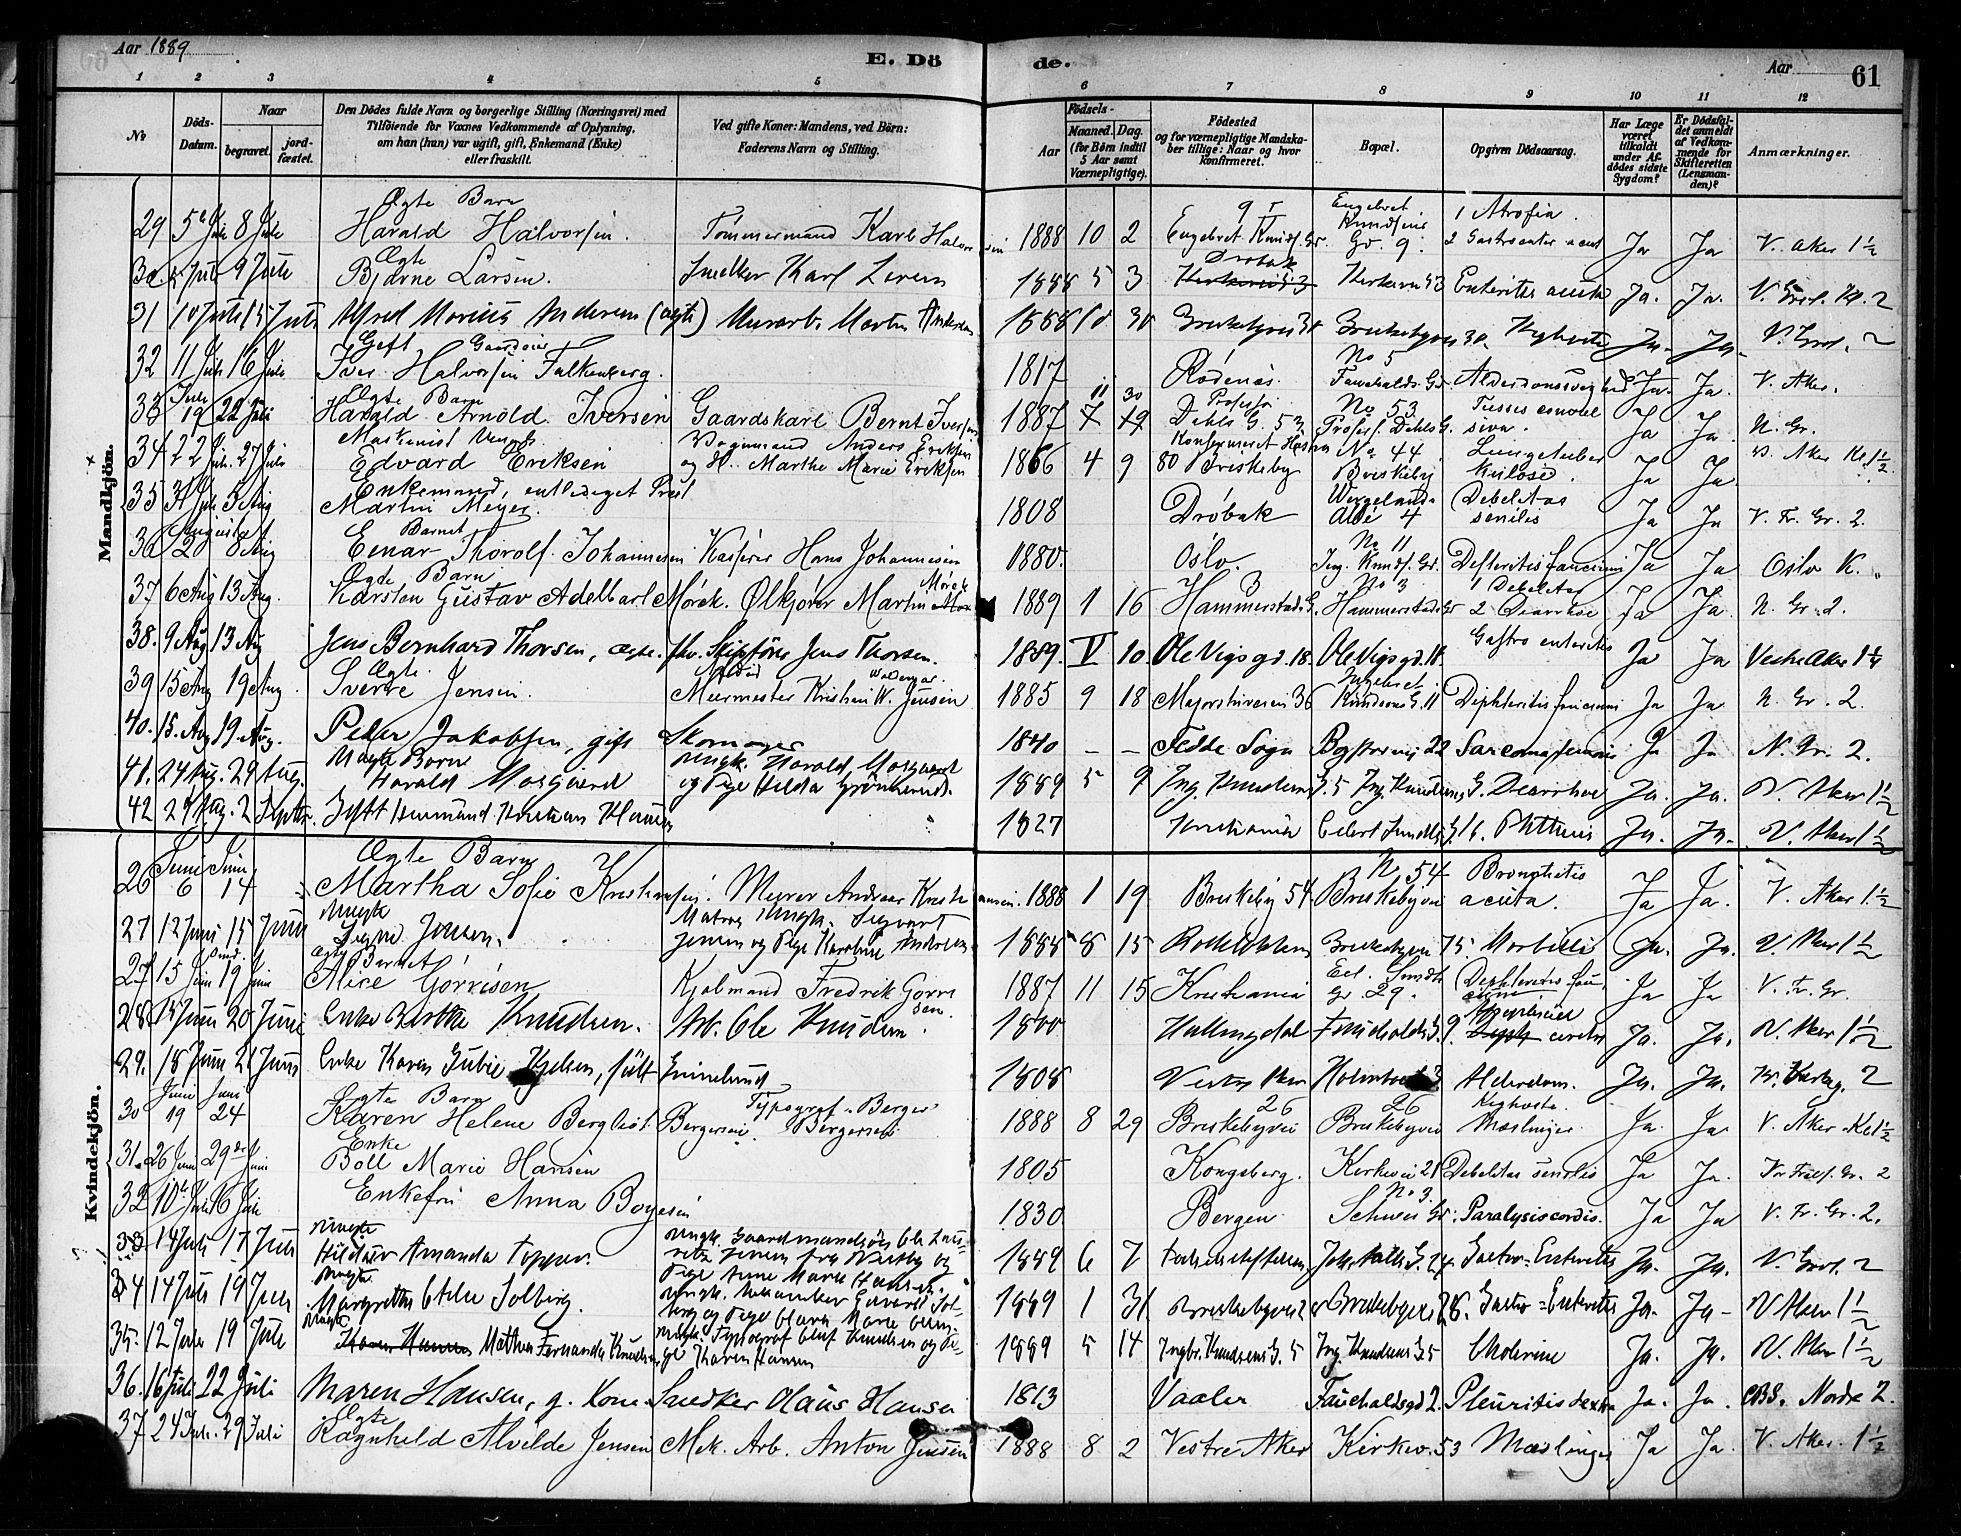 Aar 1889 E. Döde. Aar 61
1 2 3 4 5 6 7 8 9 10 11 12
No Döds-Datum. Naar begravet. jordfæstet. Den Dödes fulde Navn og borgerlige Stilling (Næringsvei) med Tilföiende for Voxnes Vedkommende af Oplysning, om han (hun) var ugift, gift, Enkemand (Enke) eller fraskilt. Ved gifte Koner: Mandens, ved Börn: Faderens Navn og Stilling. Födsels- Aar Maaned. Dag. (for Börn indtil 5 Aar samt Værnepligtige). Födested og for værnepligtige Mandskaber tillige: Naar og hvor konfirmeret. Bopæl. Opgiven Dödsaarsag. Har Læge været tilkaldt under Afdödes sidste Sygdom? Er Dödsfaldet anmeldt af Vedkommende for Skifteretten (Lensmanden)? Anmærkninger.
Mandkjön.
29 5 Juli 8 Juli Ægte Barn Harald Halvorsen. Tömmermand Karl Halvorsen 1888 10 2 Engebret Knuds. Gr. 9 Engebret Knudsens Gr. 9. 1 Atrofia. 2 Gastroenter acut Ja Ja V. Aker 1½
30. Juli 9 Juli Ægte Bjarne Larsen. Snedker Karl 1888 5 3 Dröbak Kirkeveien 53 Enteritis acuta Ja. Ja. V. Grvl. Kl. 2
31 10 Juli 15 Juli Alfred Marius Andersen (ægte) Murarb. Martin Andersen 1888 10 30 Briskebyvei 30 Briskebyvei 30. Kighoste Ja. Ja. V. Grvl. 2
32 11 Juli 16 Juli Gift Iver Halvorsen Falkenberg. 1817 Rödenæs No 5 Fauchalds G. Alderdomssvaghed Ja. Ja. V. Aker.
33 Juli 19 22 Juli Ægte Barn Harald Arnold Iversen Gaardskarl Bernt Iversen 1887 11 30 Professor Dahls G. 53 No 53 Profess. Dahls G. Tussis convulsiva. Ja Ja. N. Gr.
34 22 Juli. 27 Juli Maskinist Edvard Eriksen Vognmand Anders Eriksen og H. Marthe Marie Eriksen 1866 4 9 Konfirmeret 80 Briskeby No 44 Briskeby Lungetuberkulose. Ja Ja V. Aker Kl. 1½
35 31 Juli 5 Aug Enkemand, entlediget Præst Martin Meyer. 1808 Dröbak Wergelands Allé 4 Debilitas senilis Ja Ja V. Fr. Gr. 2.
36 Augusti 2 8 Aug Barnet Einar Thorolf Johannesen Kasserer Hans Johannesen 1880. Oslo. No 11 Ing. Knuds. Gr. Difteritis faucium Ja Ja Oslo K.
37 6 Aug 13 Aug. Ægte Barn Karsten Gustav Adelbart Mörck. Ölkjörer Martin Mörck 1889 1 16 Hammerstads G. 3 No 3 Hammerstads Gr 1 Debilitas 2 Diarrhoe Ja Ja. N. Gr. 2.
38. 9 Aug 13 Aug Jens Bernhard Thorsen, ægte. fhv. Skibförer Jens Thorsen. 1889. V 10. Ole Vigs gd. 18. Ole Vigs gd. 18. Gastro enteritis Ja Ja Vestre Aker 1¼
39 15 Aug 19 Aug. Ægte Sverre Jensen. Murmester Kristian W. Jensen Waldemar. 1885 9 18 Majorstuveien 36 Ingebret Knudsens G. 11 Diphteritis faucium Ja Ja. N. Gr. 2.
40. 15. Aug 19. Aug. Peder Jakobsen, gift Skomager 1840 – – Fedde Sogn Bygdövei 22 Sarcoma Ja Ja N. Gr. 2.
41. 24 Aug. 29 Aug. Uægte Barn Harald Mosgaard Ungk. Harald Mosgaard og Pige Hilda 1889 5 9 Ing. Knudsens G. 5 Ing. Knudsens G. Diarrhoe Ja. Ja. V. Aker 1½
42 29 Aug. 2 Septbr. Gift Hermand Kristian Hansen 1827 Kristiania Eilert Sundts G. 16. Phthisis Ja. Ja. V. Aker 1½
Kvindekjön.
26 Juni 6 Juni 14 Ægte Barn Martha Sofie Kristiansen. Murer Andreas Kristiansen. 1888 1 19 Briskeby 54 No 54 Briskebyvei Bronchitis acuta. Ja Ja. V. Aker 1½
27 12 Juni 15 Juni Uægte Signe Jensen. Matros Ungk. Sigvart Jensen og Pige Karoline Andersen 1888 8 15 Briskebyvei 75. Morbilli Ja. Ja. V. Aker 1½
27 15 Juni 19 Juni Ægte Barnet Alice Görrisen Kjöbmand Fredrik Görrisen 1887 11 15 Kristiania Eil. Sundts Gr 29. Diphteritis faucium. Ja Ja V. Fr. Gr.
28. 15 Juni 20 Juni Enke Berthe Knudsen. Arb. Ole Knudsen. 1800 Hallingdal Fauchalds G. 9. Apoplexia cerebri Ja. Ja. V. Aker 1½
29. 18 Juni 21 Juni Enke Karen Gubie född 1808 Vestre Aker Alderdom. Ja. Ja. 2
30 Juni 19 Juni 24 Ægte Barn Karen Helene Bergliot Bergersen. Typograf Berger Bergersen 1888 8 29 26 Briskebyvei 26 Briskebyvei Kighoste. Mæslinger Ja. Ja. V. Aker Kl 1½
31. 26 Juni 29 Juni Enke Boll Marie Hansen 1805 Kongsberg. Kirkevei 21 Debilitas senilis Ja Ja. Vor Frels. Gr. 2
32 10 Juli 16 Juli Enkefru Anna Boyesen 1830 Bergen No 3. Schwei Gr. Paralysis cordis. Ja Ja V. Fr. Gr. 2.
33 14 Juli 17 Juli Uægte Hildur Amanda 1889 6 7 Födselsstiftelsen Gastro-Enteritis Ja. Ja. V. Grvl. 2
34 14 Juli 19 Juli Uægte Margrethe Solberg. 1889 1 31 Briskebyvei Briskebyvei 26. Gastro-Enteritis Ja. Ja V Aker 1½
35. 12 Juli 19 Juli Uægte Karen Hansen Mathea Fernanda Knudsen Ungk. Typograf Oluf Knudsen og Pige Karen Hansen 1889 5 14 Ingbr. Knudsens G. 5 Ing. Knudsens G. 5 Cholerine Ja. Ja. V. Aker 1½
36. 16 Juli 22 Juli Maren Hansen, g. Kone Snedker Claus Hansen 1813 Vaaler Fauchaldsgd 2. Pleuritis dextra Ja. Ja. Nordre 2.
37 24 Juli. 29 Juli Ægte Ragnhild Alvilde Jensen Mek. Arb. Anton Jensen 1888 8 2 Vestre Aker Kirkev. 53 Mæslinger Ja Ja. V. Aker. 1½